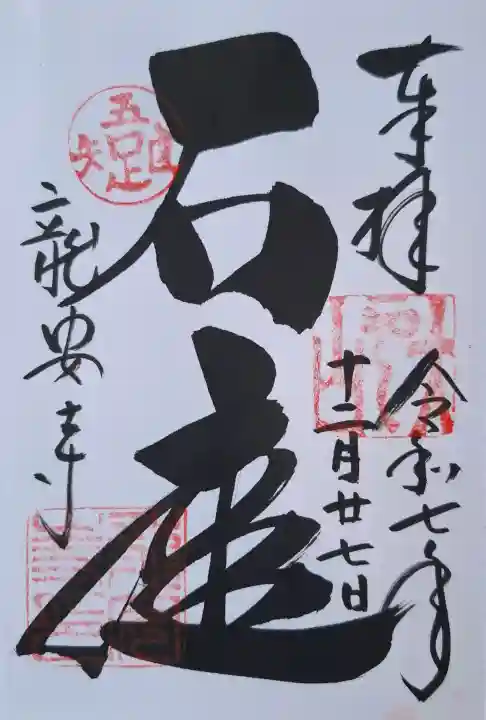 奉拝
令和七年
十二月廿七日
石庭
五
隹
疋
矢
龍安寺